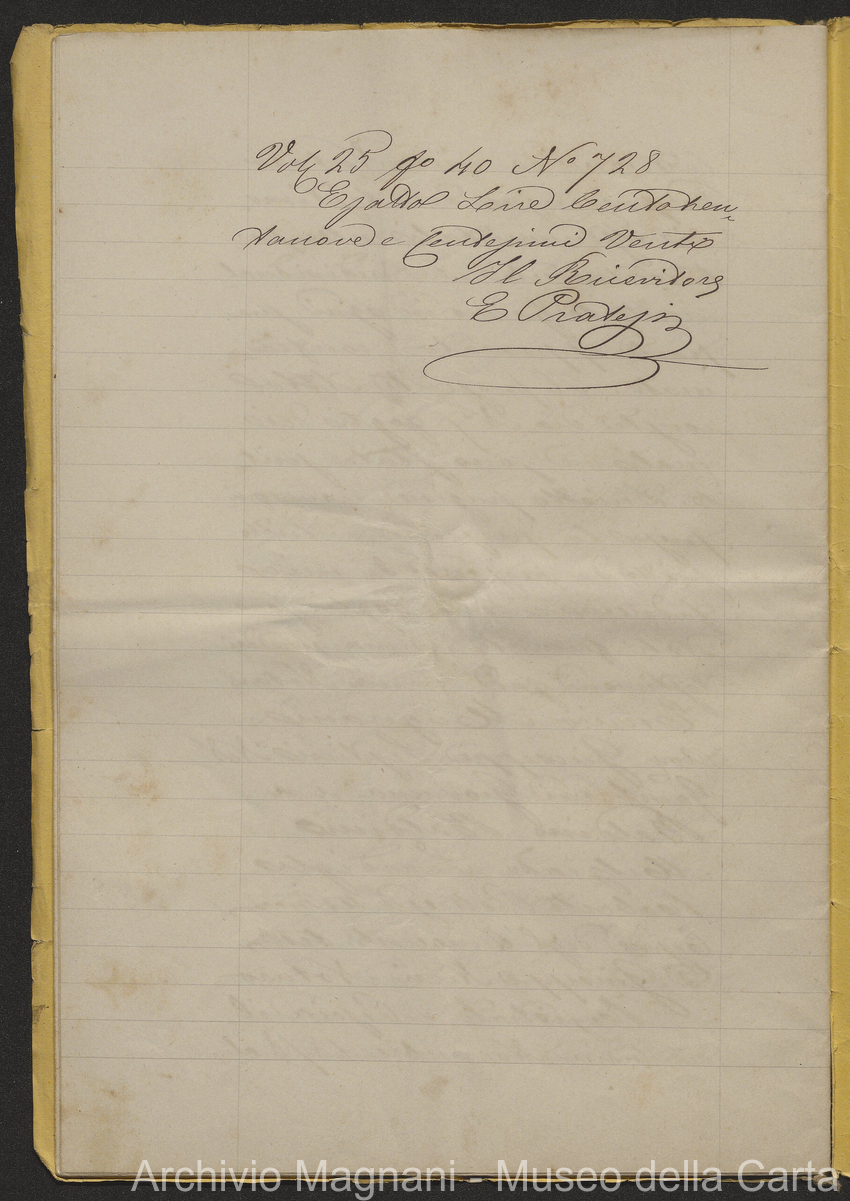 Vol 25 fo 40 No 728
Esatto Lire Centotren
tanove e Centesimi Venti
Il Ricevitore
E Pratesi
Archivio Magnani - Museo della Carta